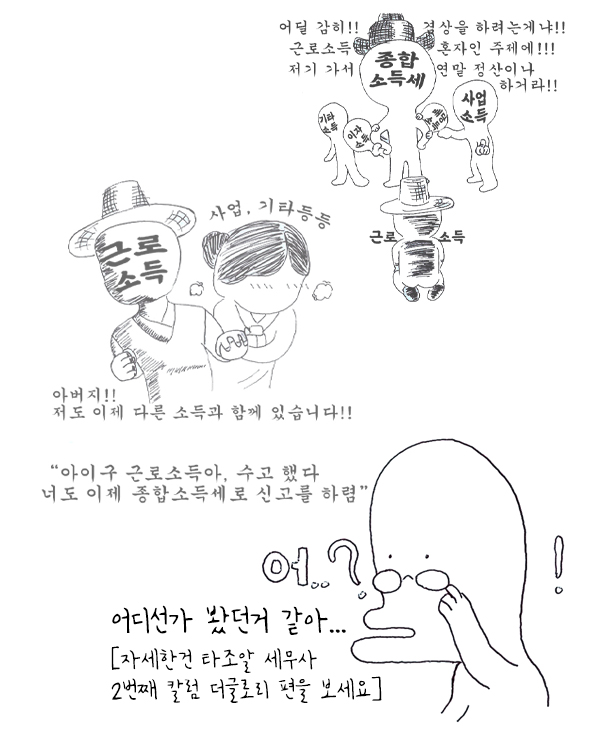 어딜 감히!! 겸상을 하려는게냐!!
근로소득 혼자인 주제에!!!
저기 가서 연말 정산이나
하거라!!
종합
소득세
사업
소득
기타
소득
이자
소득
배당
소득
근로 소득
사업, 기타등등
근로
소득
아버지!!
저도 이제 다른 소득과 함께 있습니다!!
“아이구 근로소득아, 수고 했다
너도 이제 종합소득세로 신고를 하렴”
어..?
!
어디선가 봤던거 같아...
[자세한건 타조알 세무사
2번째 칼럼 더글로리 편을 보세요]